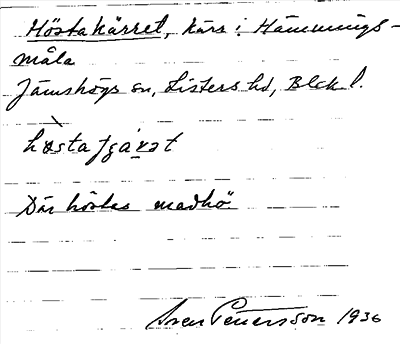 Höstakärret, kärr i Hämmings-
måla
Jämshögs sn, Listers hd, Blek l.
hǿstatjǽrat
Där höstas madhö
Sven Petersson 1936